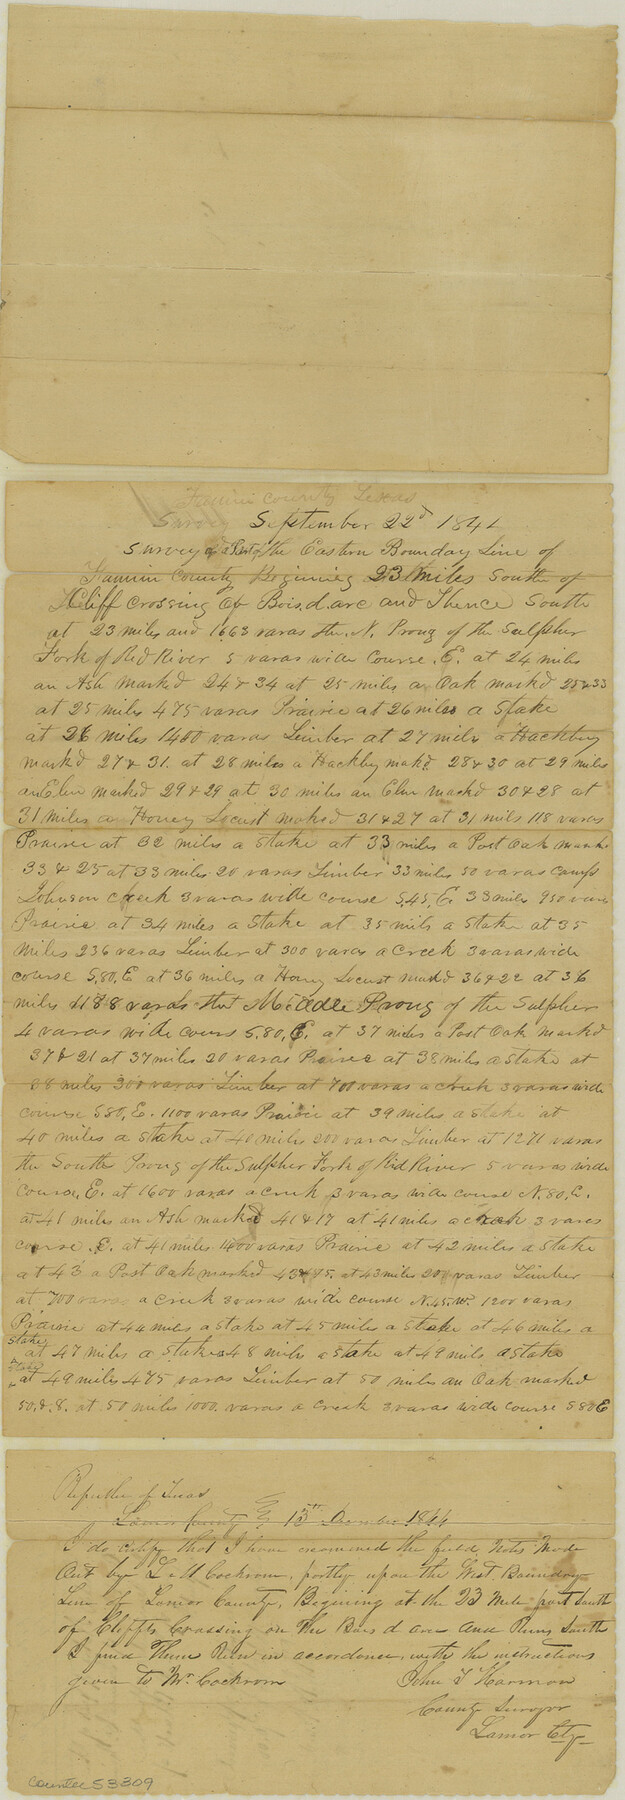 Fannin County Texas
Survey September 22d 184
Survey of a Part of the Eastern Bounday Line of
Fannin County Begining 23 miles South of
Cliff Crossing of Bois,d,arc and Thence South
at 23 miles and 1663 varas the N. Prong of the Sulpher
Fork of Red River 5 varas wide Course, E. at 24 miles
an Ash markd 24 & 34 at 25 miles an Oak markd 25 & 33
at 25 miles 475 varas Prairie at 26 miles a Stake
at 26 miles 1400 varas Timber at 27 mils a Hackbry
markd 27 & 31. at 28 miles a Hackby makd 28 & 30 at 29 miles
an Elm marked 29 & 29 at 30 miles an Elm markd 30 & 28 at
31 miles an Honey Locust markd 31 & 27 at 31 mils 118 varas
Prairie at 32 miles a stake at 33 miles a Post Oak markd
33 & 25 at 33 miles 20 varas Timber 33 miles 50 varas camp
Johnson creek 3 varas wide course S,45,E. 33 miles 950 varas
Prairie at 34 miles a Stake at 35 mils a Stake at 35
miles 236 varas Timber at 300 varas a Creek 3 varas wide
course S,80,E at 36 miles a Honey Locust markd 36 & 22 at 36
miles 1188 varas that Middle Prong of the Sulpher
4 varas wide cours S,80,E. at 37 miles a Post Oak markd
37 & 21 at 37 miles 20 varas Prairie at 38 miles a stake at
38 miles 300 varas Timber at 700 varas a creek 3 varas wide
course S80,E. 1100 varas Prairie at 39 miles a stake at
40 miles a stake at 40 miles 200 varas Timber at 1271 varas
the South Prong of the Sulpher Fork of Rid River 5 varas wide
Course, E. at 1600 varas a creek 3 varas wide course N.80,E.
at 41 miles an Ash marked 41 & 17 at 41 miles a creek 3 varas
course E. at 41 miles 1400 varas Prairie at 42 miles a Stake
at 43 a Post Oak marked 43 & 15. at 43 miles 200 varas Timber
at 700 varas a creek 3 varas wide course N.45.W. 1200 varas
Prairie at 44 miles a stake at 45 miles a stake at 46 miles a
stake at 47 miles a stake 48 miles a stake at 49 mils a stake
at 49 miles 475 varas Timber at 50 miles an Oak marked
50,&,8. at 50 miles 1000 varas a creek 3 varas wide course S80E
Republic of Texas
Lamar County 13th December 1844
I do certify that I have examined the field Notes Made
Out by Cockrom, partly upon the West Boundry
Line of Lamar County, Begining at the 23 Mile post South
of Clifts Crossing on the Bois d arc and Runs South
I find Them Run in accordance with the instructions
given to Mr. Cockrom John Harmon
County Surveyor
Lamar Cty
counter 53309